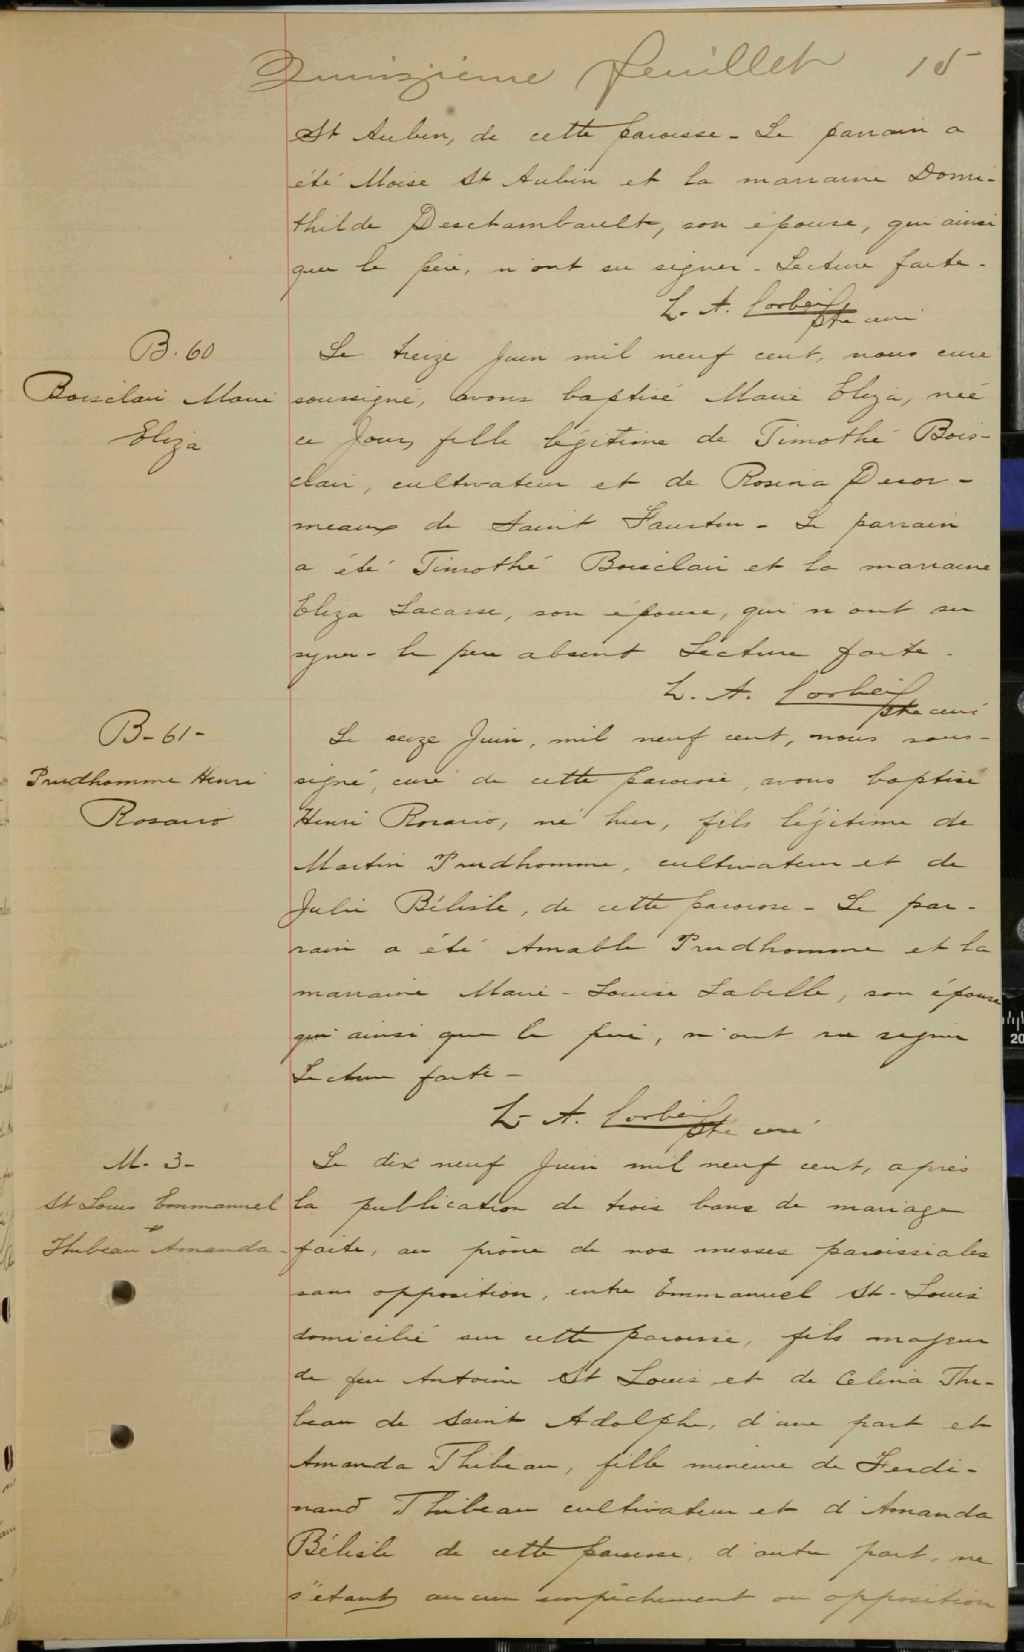 Quinzième feuillet 15
St Aubin, de cette paroisse - Le parrain a
été Moise St Aubin et la marraine Domi-
thilde Deschambault, son épouse, qui ainsi
que le père, n'ont su signer - Lecture faite -
L. A. Corbeil
ptre curé
B. 60
Boisclair Marie
Eliza
Le treize Juin mil neuf cent, nous curé
soussigné, avons baptisé Marie Eliza, née
ce Jour, fille légitime de Timothé Bois-
clair, cultivateur et de Rosina Desor-
meaux de Saint Faustin - Le parrain
a été Timothé Boisclair et la marraine
Eliza Lacasse, son épouse, qui n'ont su
signer - le père absent Lecture faite -
L. A. Corbeil
ptre curé
B - 61 -
Prudhomme Henri
Rosario
Le seize Juin, mil neuf cent, nous sous-
signé, curé de cette paroisse, avons baptisé
Henri Rosario, né hier, fils légitime de
Martin Prudhomme, cultivateur et de
Julie Bélisle, de cette paroisse - Le par-
rain a été Amable Prudhomme et la
marraine Marie - Louise Labelle, son épouse
qui ainsi que le père, n'ont su signer
Lecture faite -
L. A. Corbeil
ptre curé
M. 3 -
St Louis Emmanuel
&
Thibeau Amanda -
Le dix neuf Juin mil neuf cent, après
la publication de trois bans de mariage
faite, au prône de nos messes paroissiales
sans opposition, entre Emmanuel St - Louis
domicilié sur cette paroisse, fils majeur
de feu Antoine St Louis et de Celina Thi-
beau de Saint Adolphe, d'une part et
Amanda Thibeau, fille mineure de Ferdi-
nand Thibeau cultivateur et d'Amanda
Bélisle de cette paroisse, d'autre part, ne
s'étant aucun empêchement ou opposition